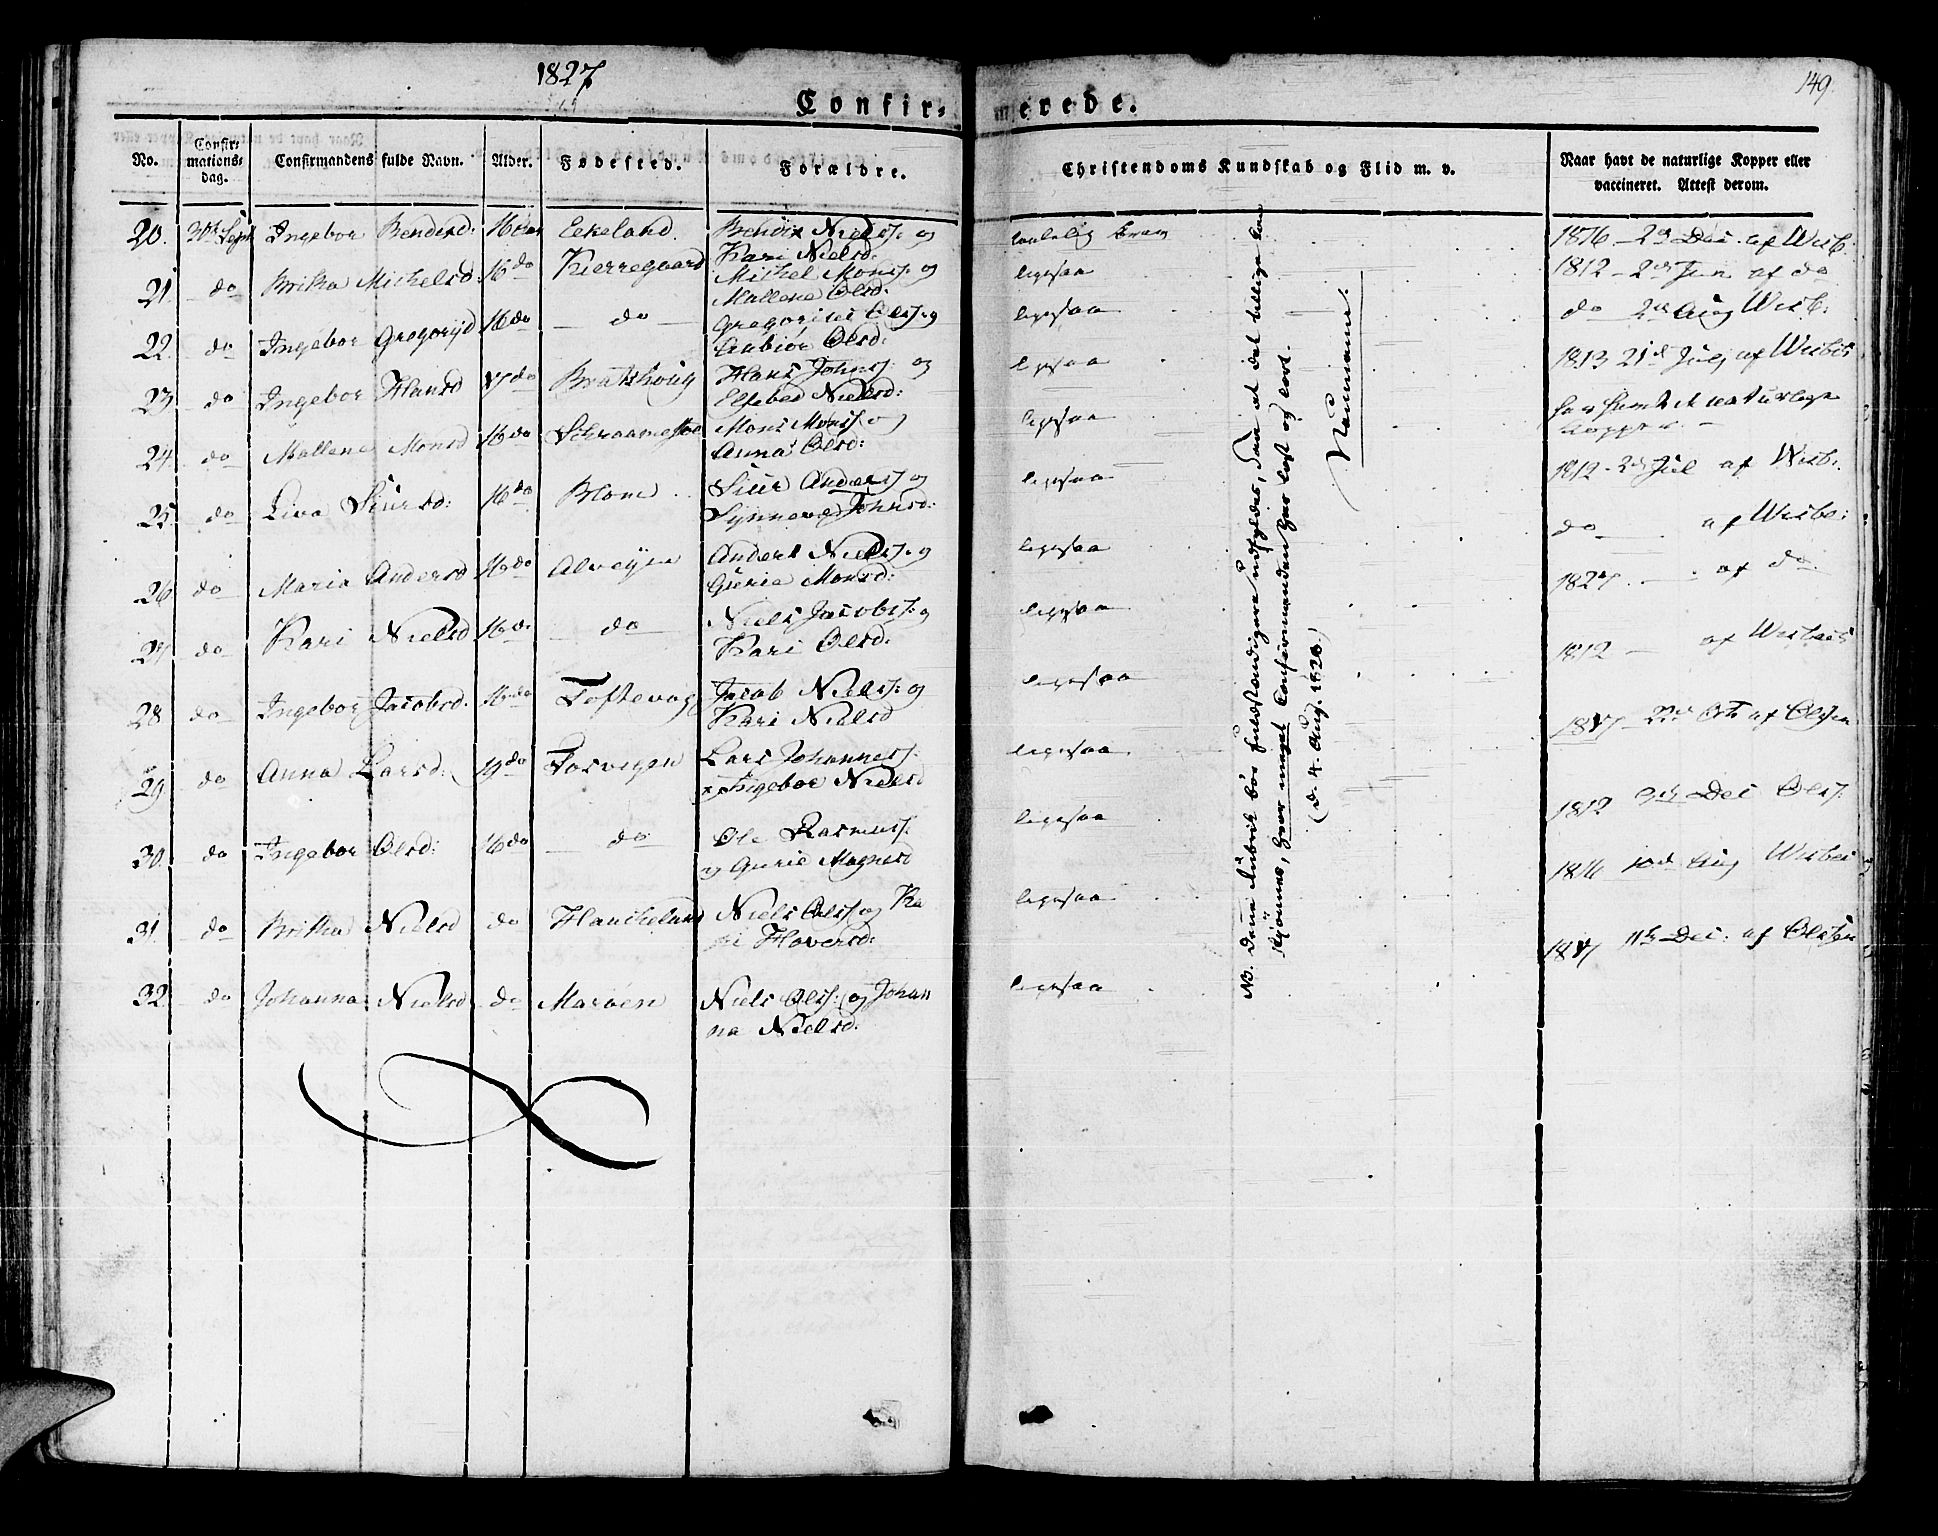 1827
149.
Confirmerede.
No. Confirmationsdag. Confirmandens fulde Navn. Alder. Fødested. Forældre. Christendoms Kundskab og Flid m. v. Naar havt de naturlige Kopper eller vaccineret. Attest derom.
20. 30te Sept Ingebor Bendixd: 16 Aar Eekeland. Bendix Niels: og
Kari Nielsd: 1816 2d Dec. af Wisb:
21 do Britha Michelsd: 16 do Kierregaard Michel Mons: og
Mallene Olsd: ligesaa 1812 2d Jun af do
22 do Ingebor Gregorijd 16 do do Gregorius Ols: og
Anbiør Olsd: ligesaa do 2d Aug Wisb:
23 do Ingebor Hansd 17 do Bratshoug Hans Johns: og
Elsebe Nielsd: ligesaa 1813 21d Julj af Wisbes
24. do Mallena Monsd 16 do Mons Mons: og
Anna Olsd: ligesaa har havt de naturlige
Kopper
25 do Liva Siursd: 16 do Blom Siur Anders: og
Synneve Johnsd: ligesaa 1812 2d Jul af Wisb:
26 do Maria Andersd 16 do Alvøyen Anders Niels: og
Gurie Monsd: ligesaa do af Wisbe:
27 do Kari Nielsd 16 do do Niels Jacobs: og
Kari Olsd: ligesaa 1827. af do
28 do Ingebor Jacobsd. 16 do Toftevog Jacob Niels: og
Kari Nielsd ligesaa 1812 af Wisbes
29 do Anna Larsd: 19 do Lars Johannes:
og Ingebor Nielsd ligesaa 1817 22d Oct af Olsen
30. do Ingebor Olsd: 16 do do Ole Rasmus:
og Gurie Magnesd ligesaa 1812 9d Dec Ols:
31. do Britha Nielsd do Haukeland Niels Ols: og Ka
ri Haversd: ligesaa 1816 10d Aug Wisbes
32. do Johanna Nielsd do Marøen Niels Ols: og Johan
na Nielsd: ligesaa 1817 11d Dec: af Olsen
NB. Denne Rubrik bør fuldstændigere udfyldes, saa at det tillige kan
skjønnes, hvor meget Confirmanden har læst og lært.
(d. 4. Aug. 1828.)
Neumann.